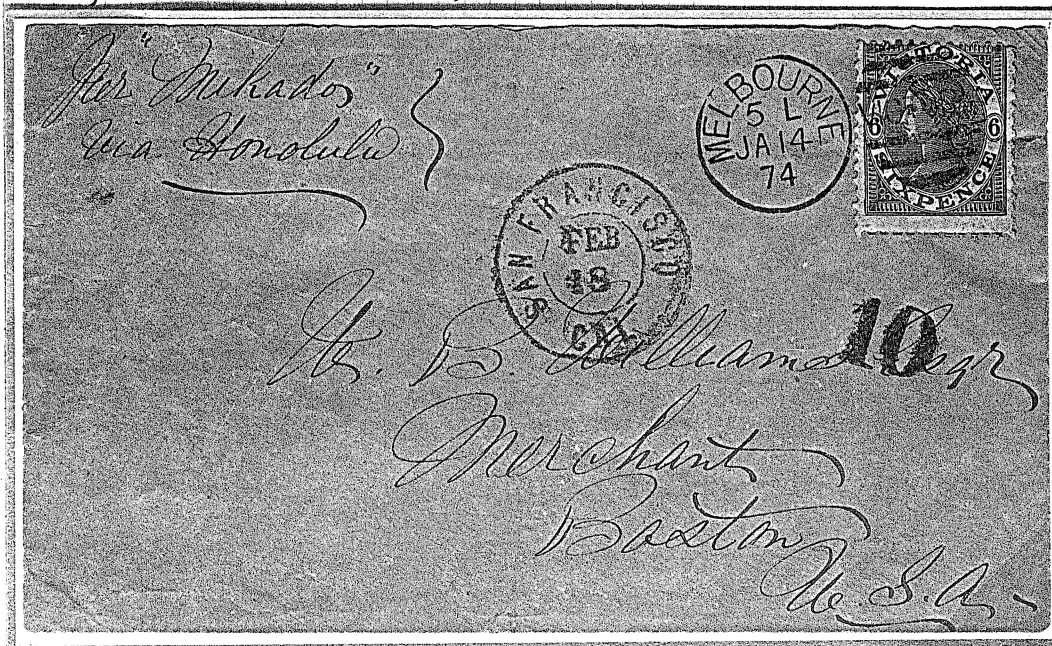 Per "Mikado"
via Honolulu
MELBOURNE
5 L
JA 14
74
VICTORIA
6 6
SIXPENCE
SAN FRANCISCO
FEB
18
CAL
10
W. B. Williams Esqr
Merchant
Boston
U.S.A.